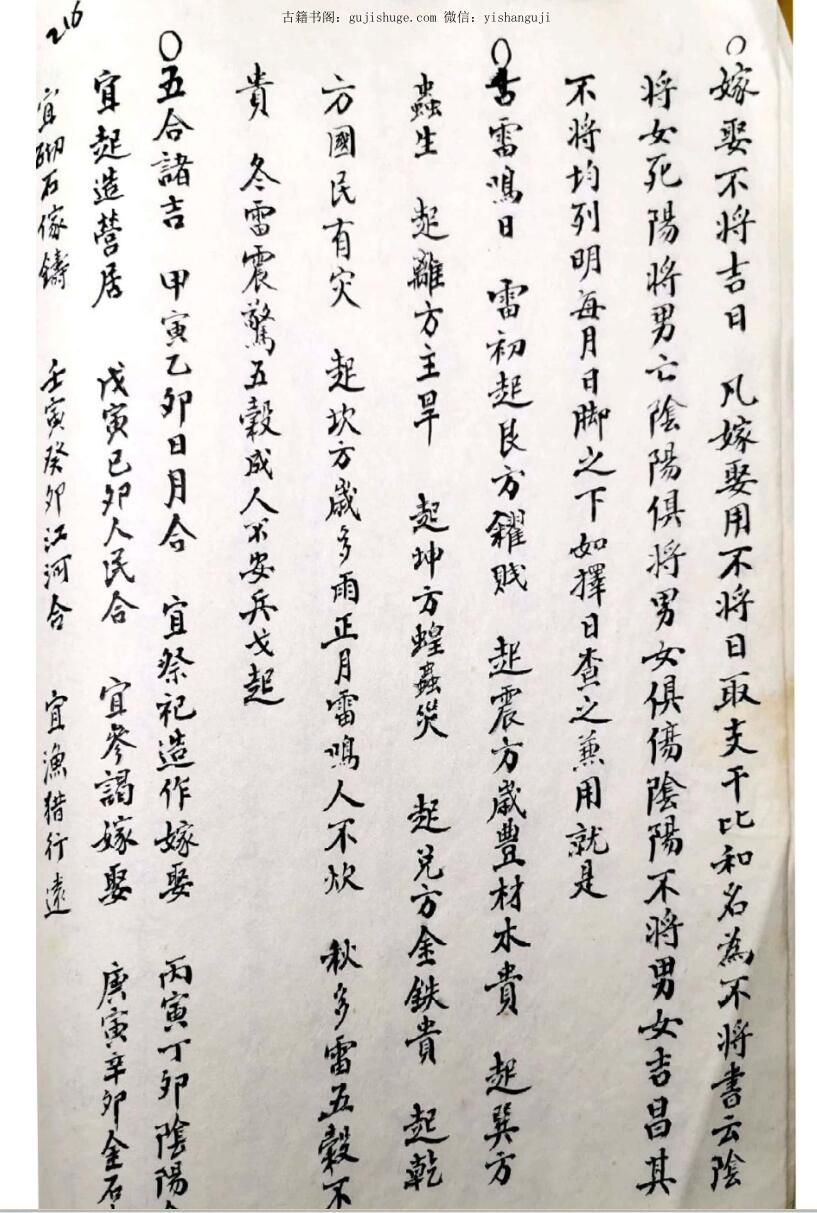 古籍书阁：gujishuge.com 微信：yishanguji
216
○嫁娶不将吉日 凡嫁娶用不将日取支干比和名為不将書云陰
将女死陽将男亡陰陽俱将男女俱傷陰陽不将男女吉昌其
不将均列明每月日脚之下如擇日查之兼用就是
○雷鳴日 雷初起艮方糴賤 起震方歲豊材木貴 起巽方
蟲生 起離方主旱 起坤方蝗蟲災 起兑方金鉄貴 起乾
方國民有灾 起坎方歲多雨正月雷鳴人不炊 秋多雷五穀不
貴 冬雷震驚五穀成人不安兵戈起
○五合諸吉 甲寅乙卯日月合 宜祭祀造作嫁娶 丙寅丁卯陰陽
宜起造營居 戊寅己卯人民合 宜參謁嫁娶 庚寅辛卯金石
宜砌石傢鑄 壬寅癸卯江河合 宜漁猎行遠